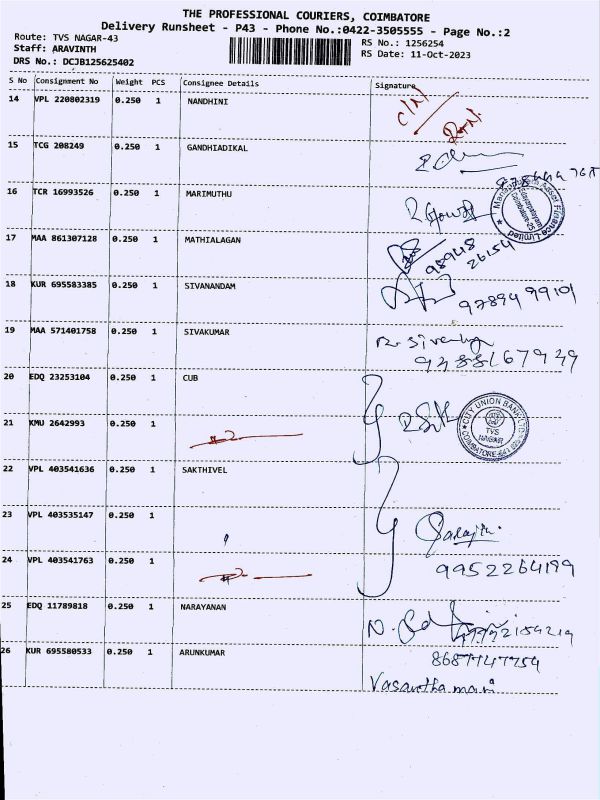 THE PROFESSIONAL COURIERS, COIMBATORE
Delivery Runsheet - P43 - Phone No.:0422-3505555 - Page No.:2
Route: TVS NAGAR-43
RS No.: 1256254
Staff: ARAVINTH
RS Date: 11-Oct-2023
DRS No.: DCJB125625402
S No Consignment No Weight PCS Consignee Details Signature
14 VPL 220802319 0.250 1 NANDHINI
15 TCG 208249 0.250 1 GANDHIADIKAL
16 TCR 16993526 0.250 1 MARIMUTHU
17 MAA 861307128 0.250 1 MATHIALAGAN
98948
26154
18 KUR 695583385 0.250 1 SIVANANDAM
97894 99101
19 MAA 571401758 0.250 1 SIVAKUMAR
20 EDQ 23253104 0.250 1 CUB
CITY UNION BANK LTD
TVS
NAGAR
21 KMU 2642993 0.250 1
22 VPL 403541636 0.250 1 SAKTHIVEL
23 VPL 403535147 0.250 1
24 VPL 403541763 0.250 1
9952264199
25 EDQ 11789818 0.250 1 NARAYANAN
26 KUR 695580533 0.250 1 ARUNKUMAR
8687747754
Vasantha mari